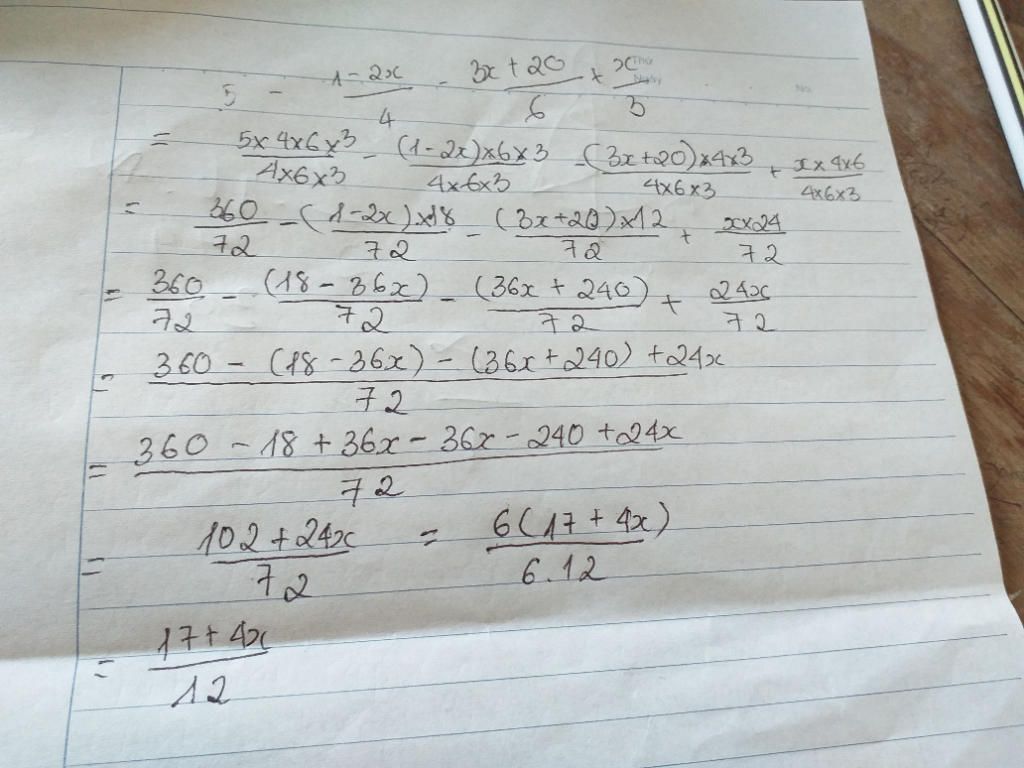 5 - \frac{1-2x}{4} - \frac{3x+20}{6} + \frac{x}{3}
= \frac{5×4×6×3}{4×6×3} - \frac{(1-2x)×6×3}{4×6×3} - \frac{(3x+20)×4×3}{4×6×3} + \frac{x×4×6}{4×6×3}
= \frac{360}{72} - \frac{(1-2x)×18}{72} - \frac{(3x+20)×12}{72} + \frac{x×24}{72}
= \frac{360}{72} - \frac{(18-36x)}{72} - \frac{(36x+240)}{72} + \frac{24x}{72}
= \frac{360-(18-36x)-(36x+240)+24x}{72}
= \frac{360-18+36x-36x-240+24x}{72}
= \frac{102+24x}{72} = \frac{6(17+4x)}{6.12}
= \frac{17+4x}{12}